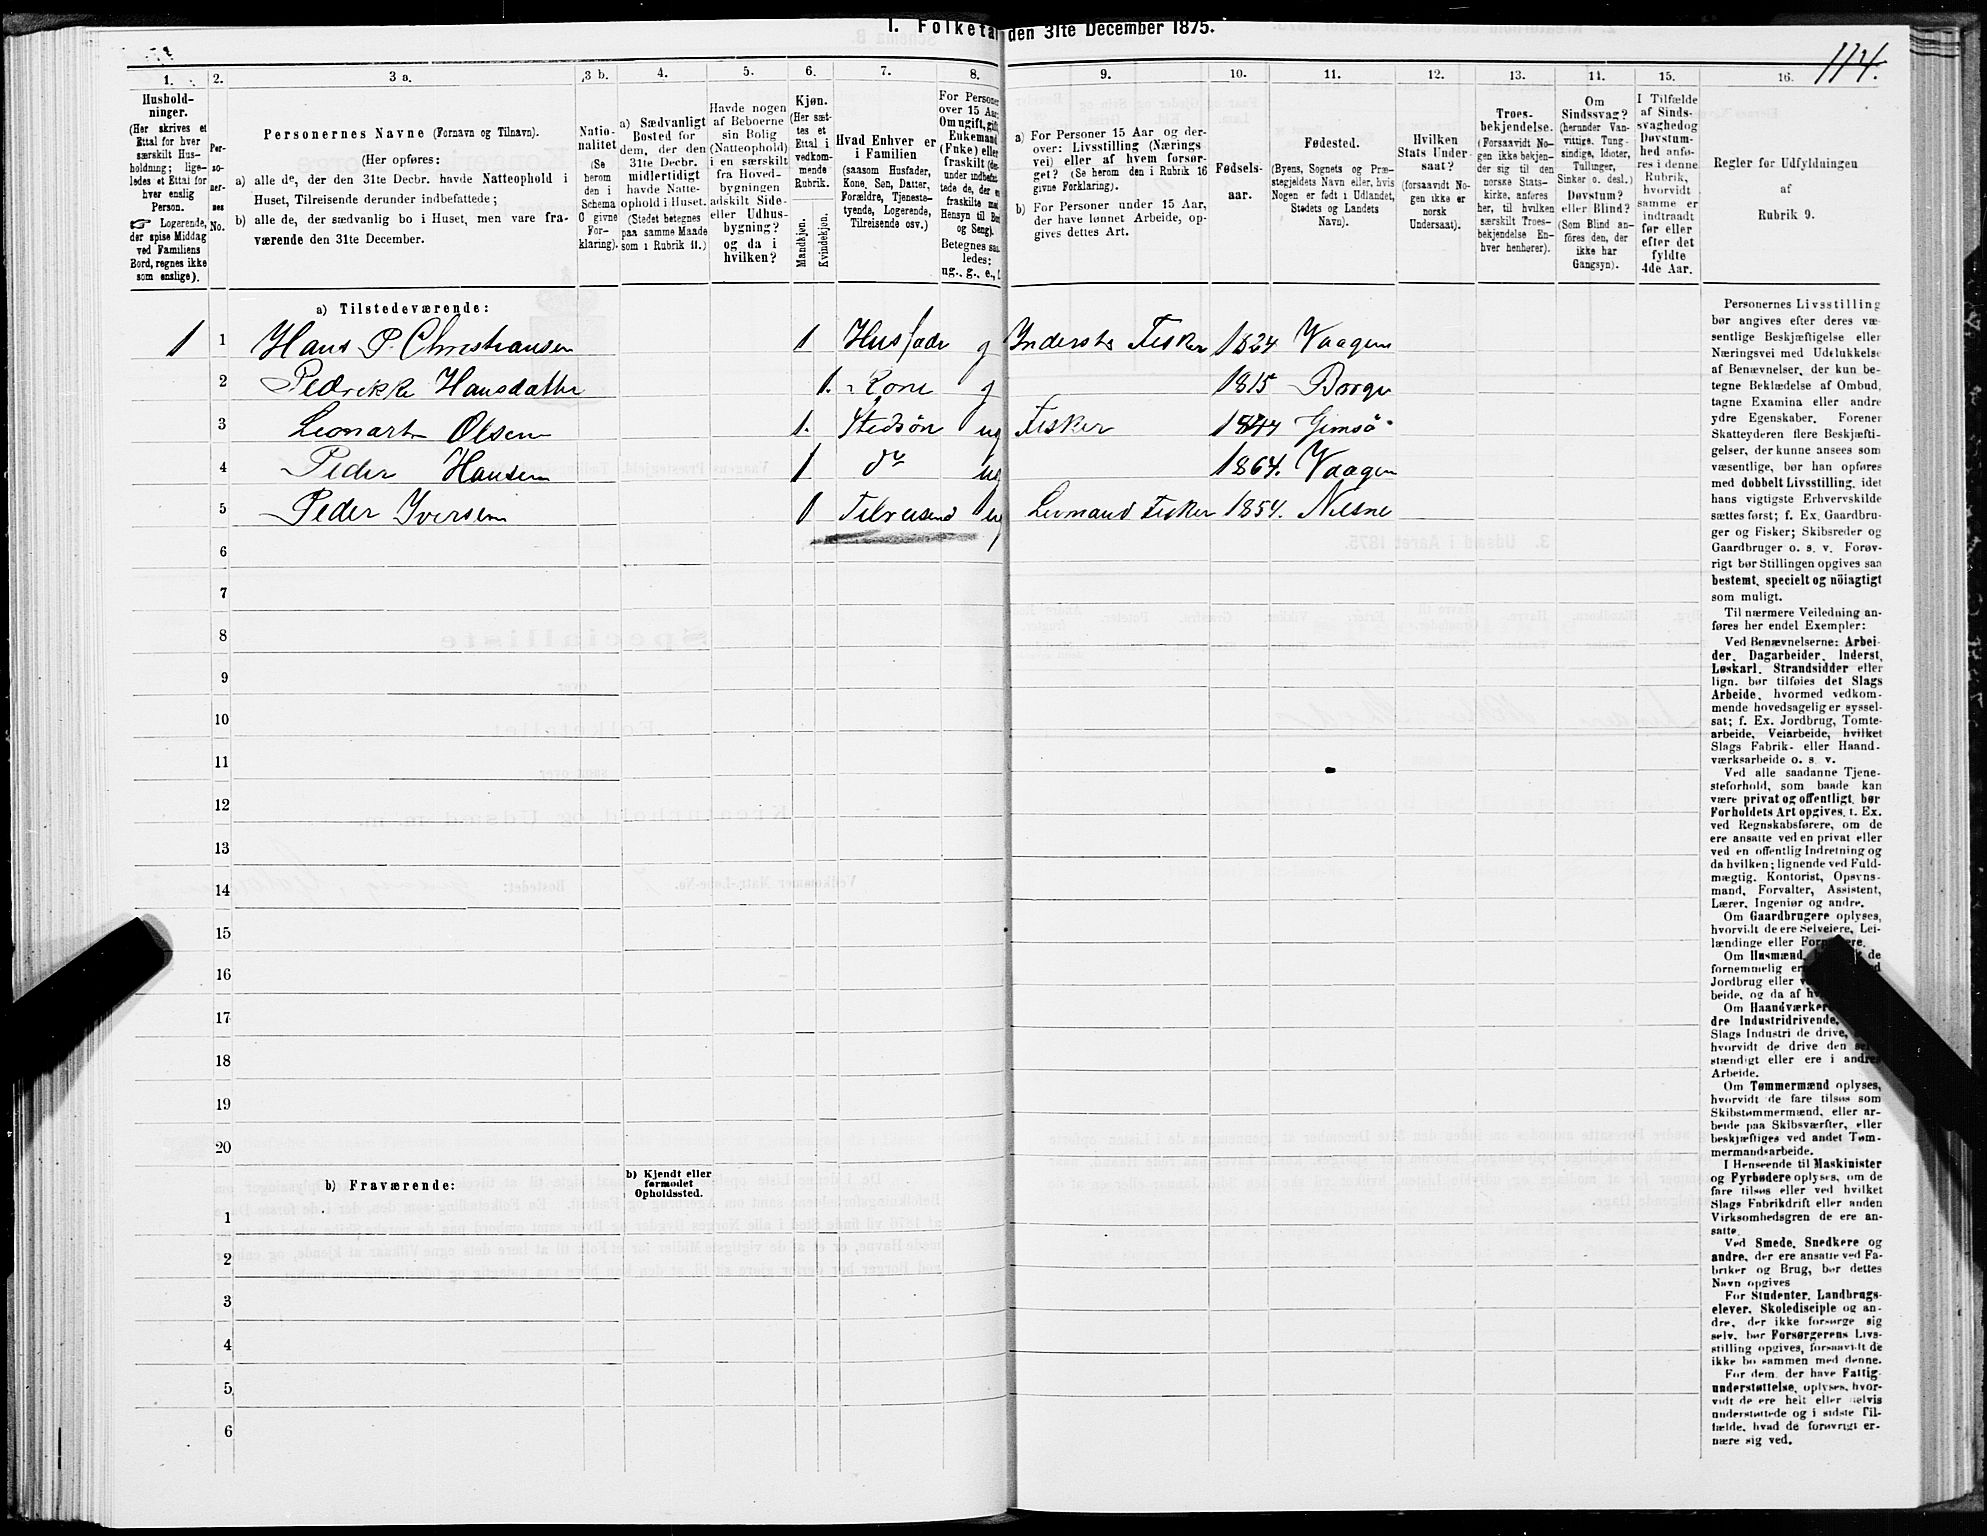 I. Folketal den 31te December 1875.
114.
1.
2.
3 a.
3 b.
4.
5.
6.
7.
8.
9.
10.
11.
12.
13.
14.
15.
16.
Hushold-
ninger.
(Her skrives et
Ettal for hver
særskilt Hus-
holdning; lige-
ledes et Ettal for
hver enslig
Person.
☞ Logerende,
der spise Middag
ved Familiens
Bord, regnes ikke
som enslige).
Per-
so-
ner-
nes
No.
Personernes Navne (Fornavn og Tilnavn).
(Her opføres:
a) alle de, der den 31te Decbr. havde Natteophold i
Huset, Tilreisende derunder indbefattede;
b) alle de, der sædvanlig bo i Huset, men vare fra-
værende den 31te December.
Natio-
nalitet
(Se
herom
den i
Schema
O givne
For-
klaring).
a) Sædvanligt
Bosted for
dem, der den
31te Decbr.
midlertidigt
havde Natte-
ophold i Huset.
(Stedet betegnes
paa samme Maade
som i Rubrik 11.)
Havde nogen
af Beboerne
sin Bolig
(Natteophold)
i en særskilt
fra Hoved-
bygningen
adskilt Side-
eller Udhus-
bygning?
og da i
hvilken?
Kjøn.
(Her sæt-
tes et
Ettal i
vedkom-
mende
Rubrik.
Mandkjøn.
Kvindekjøn.
Hvad Enhver er
i Familien
(saasom Husfader,
Kone, Søn, Datter,
Forældre, Tjeneste-
tyende, Logerende,
Tilreisende osv.)
For Personer
over 15 Aar:
Om ugift, gift,
Enkemand
(Enke) eller
fraskilt (der-
under indbefat-
tede de, der er
fraskilte med
Hensyn til Bord
og Seng).
Betegnes saa-
ledes:
ug., g., e., f.
a) For Personer 15 Aar og der-
over: Livsstilling (Nærings-
vei) eller af hvem forsør-
get? (Se herom den i Rubrik 16
givne Forklaring).
b) For Personer under 15 Aar,
der have lønnet Arbeide, op-
gives dettes Art.
Fødsels-
aar.
Fødested.
(Byens, Sognets og Præ-
stegjeldets Navn eller, hvis
Nogen er født i Udlandet,
Stedets og Landets
Navn).
Hvilken
Stats Under-
saat?
(forsaavidt No-
gen ikke er
norsk
Undersaat).
Troes-
bekjendelse.
(Forsaavidt No-
gen ikke bekjen-
der sig til den
norske Stats-
kirke, anføres
her, til hvilken
særskilt Troes-
bekjendelse En-
hver henhører).
Om
Sindssvag?
(herunder Van-
vittige, Tung-
sindige, Idioter,
Tullinger,
Sinker o. desl.)
Døvstum?
eller Blind?
(Som Blind an-
føres den, der
ikke har
Gangsyn).
I Tilfælde
af Sinds-
svaghed og
Døvstum-
hed anfø-
res i denne
Rubrik,
hvorvidt
samme er
indtraadt
før eller
efter det
fyldte
4de Aar.
Regler før Udfyldningen
af
Rubrik 9.
a) Tilstedeværende:
1 1 Hans P. Christiansen 1 Husfadr g Inderste Fisker 1824 Vaagen
2 Pedrikke Hansdatter 1. Kone g 1815 Borge
3 Leonart Olsen 1. Stedsøn ug Fisker 1844 Gimsö
4 Peder Hansen 1 do ug 1864. Vaagen
5 Peder Iversen 1 Tilreisend ug Leimand Fisker 1854. Nesne
6
7
8
9
10
11
12
13
14
15
16
17
18
19
20
b) Fraværende:
b) Kjendt eller
formodet
Opholdssted.
1
2
3
4
5
6
Personernes Livsstilling
bør angives efter deres væ-
sentlige Beskjæftigelse eller
Næringsvei med Udelukkelse
af Benævnelser, der kun be-
tegne Beklædelse af Ombud,
tagne Examina eller andre
ydre Egenskaber. Forener
Skatteyderen flere Beskjæfti-
gelser, der kunne ansees som
væsentlige, bør han opføres
med dobbelt Livsstilling, idet
hans vigtigste Erhvervskilde
sættes først; f. Ex. Gaardbru-
ger og Fisker; Skibsreder og
Gaardbruger o. s. v. Forøv-
rigt bør Stillingen opgives saa
bestemt, specielt og nöiagtigt
som muligt.
Til nærmere Veiledning an-
føres her endel Exempler:
Ved Benævnelserne: Arbei-
der, Dagarbeider, Inderst,
Løskarl, Strandsidder eller
lign. bør tilføies det Slags
Arbeide, hvormed vedkom-
mende hovedsagelig er syssel-
sat; f. Ex. Jordbrug, Tomte-
arbeide, Veiarbeide, hvilket
Slags Fabrik- eller Haand-
værksarbeide o. s. v.
Ved alle saadanne Tjene-
steforhold, som baade kan
være privat og offentligt, bør
Forholdets Art opgives, t. Ex.
ved Regnskabsførere, om de
ere ansatte ved en privat eller
ved en offentlig Indretning og
da hvilken; lignende ved Fuld-
mægtig, Kontorist, Opsyns-
mand, Forvalter, Assistent,
Lærer, Ingeniør og andre.
Om Gaardbrugere oplyses,
hvorvidt de ere Selveiere, Lei-
lændinge eller Forpagtere.
Om Husmænd, de
fornemmelig er
Jordbrug eller
beide, og da af
Om Haandværkere
dre Industridrivende,
Slags Industri de drive,
hvorvidt de drive den sel-
stændigt eller ere i andres
Arbeide.
Om Tømmermænd oplyses,
hvorvidt de fare tilsøs som
Skibstømmermænd, eller ar-
beide paa Skibsværfter, eller
beskjæftiges ved andet Tøm-
mermandsarbeide.
I Henseende til Maskinister
og Fyrbødere oplyses, om de
fare tilsøs eller ved hvilket
Slags Fabrikdrift eller anden
Virksomhedsgren de ere an-
satte.
Ved Smede, Snedkere og
andre, der ere ansatte ved Fa-
briker og Brug, bør dettes
Navn opgives
For Studenter, Landbrugs-
elever, Skoledisciple og an-
dre, der ikke forsørge sig
selv, bør Forsørgerens Livs-
stilling opgives, forsaavidt de
ikke bo sammen med denne.
For dem, der have Fattig-
understøttelse, oplyses, hvor-
vidt de ere helt eller delvis
understøttede og i sidste Til-
fælde, hvad de forøvrigt er-
nære sig ved.